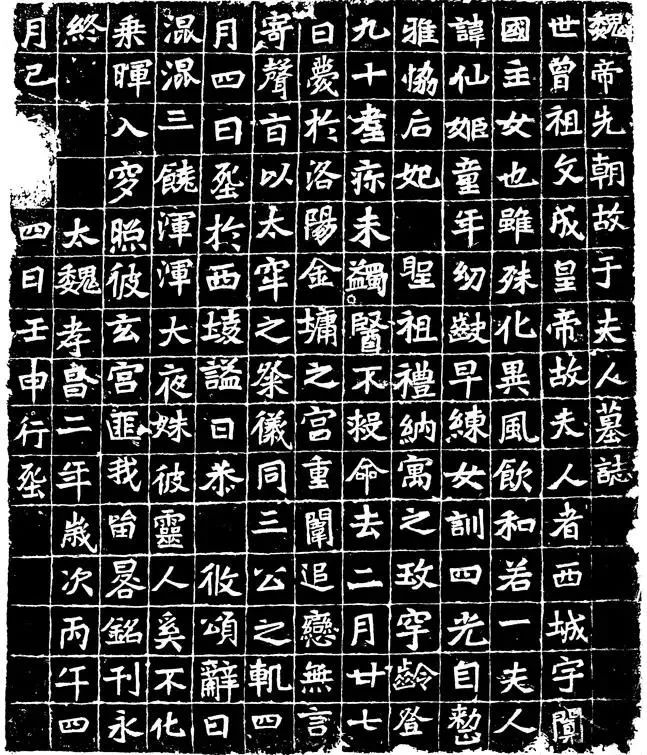 魏帝先朝故于夫人墓誌
世曾祖文成皇帝故夫人者西城宇闐
國主女也雖殊化異風飲和若一夫人
諱仙姬童年幼齔早練女訓四光自整
雅協后妃 聖祖禮納寓之玫穻齡登
九十耋疹未蠲醫不救命去二月廿七
日薨於洛陽金墉之宮重闈追戀無言
寄聲旨以太牢之祭儀同三公之軌四
月四日塟於西陵謚曰恭 攸頌辭曰
混混三饒渾渾大夜姝彼靈人奚不化
乘暉入穸照彼玄宮匪我留晷銘刊永
終 太魏孝昌二年歲次丙午四
月己 四日壬申行塟